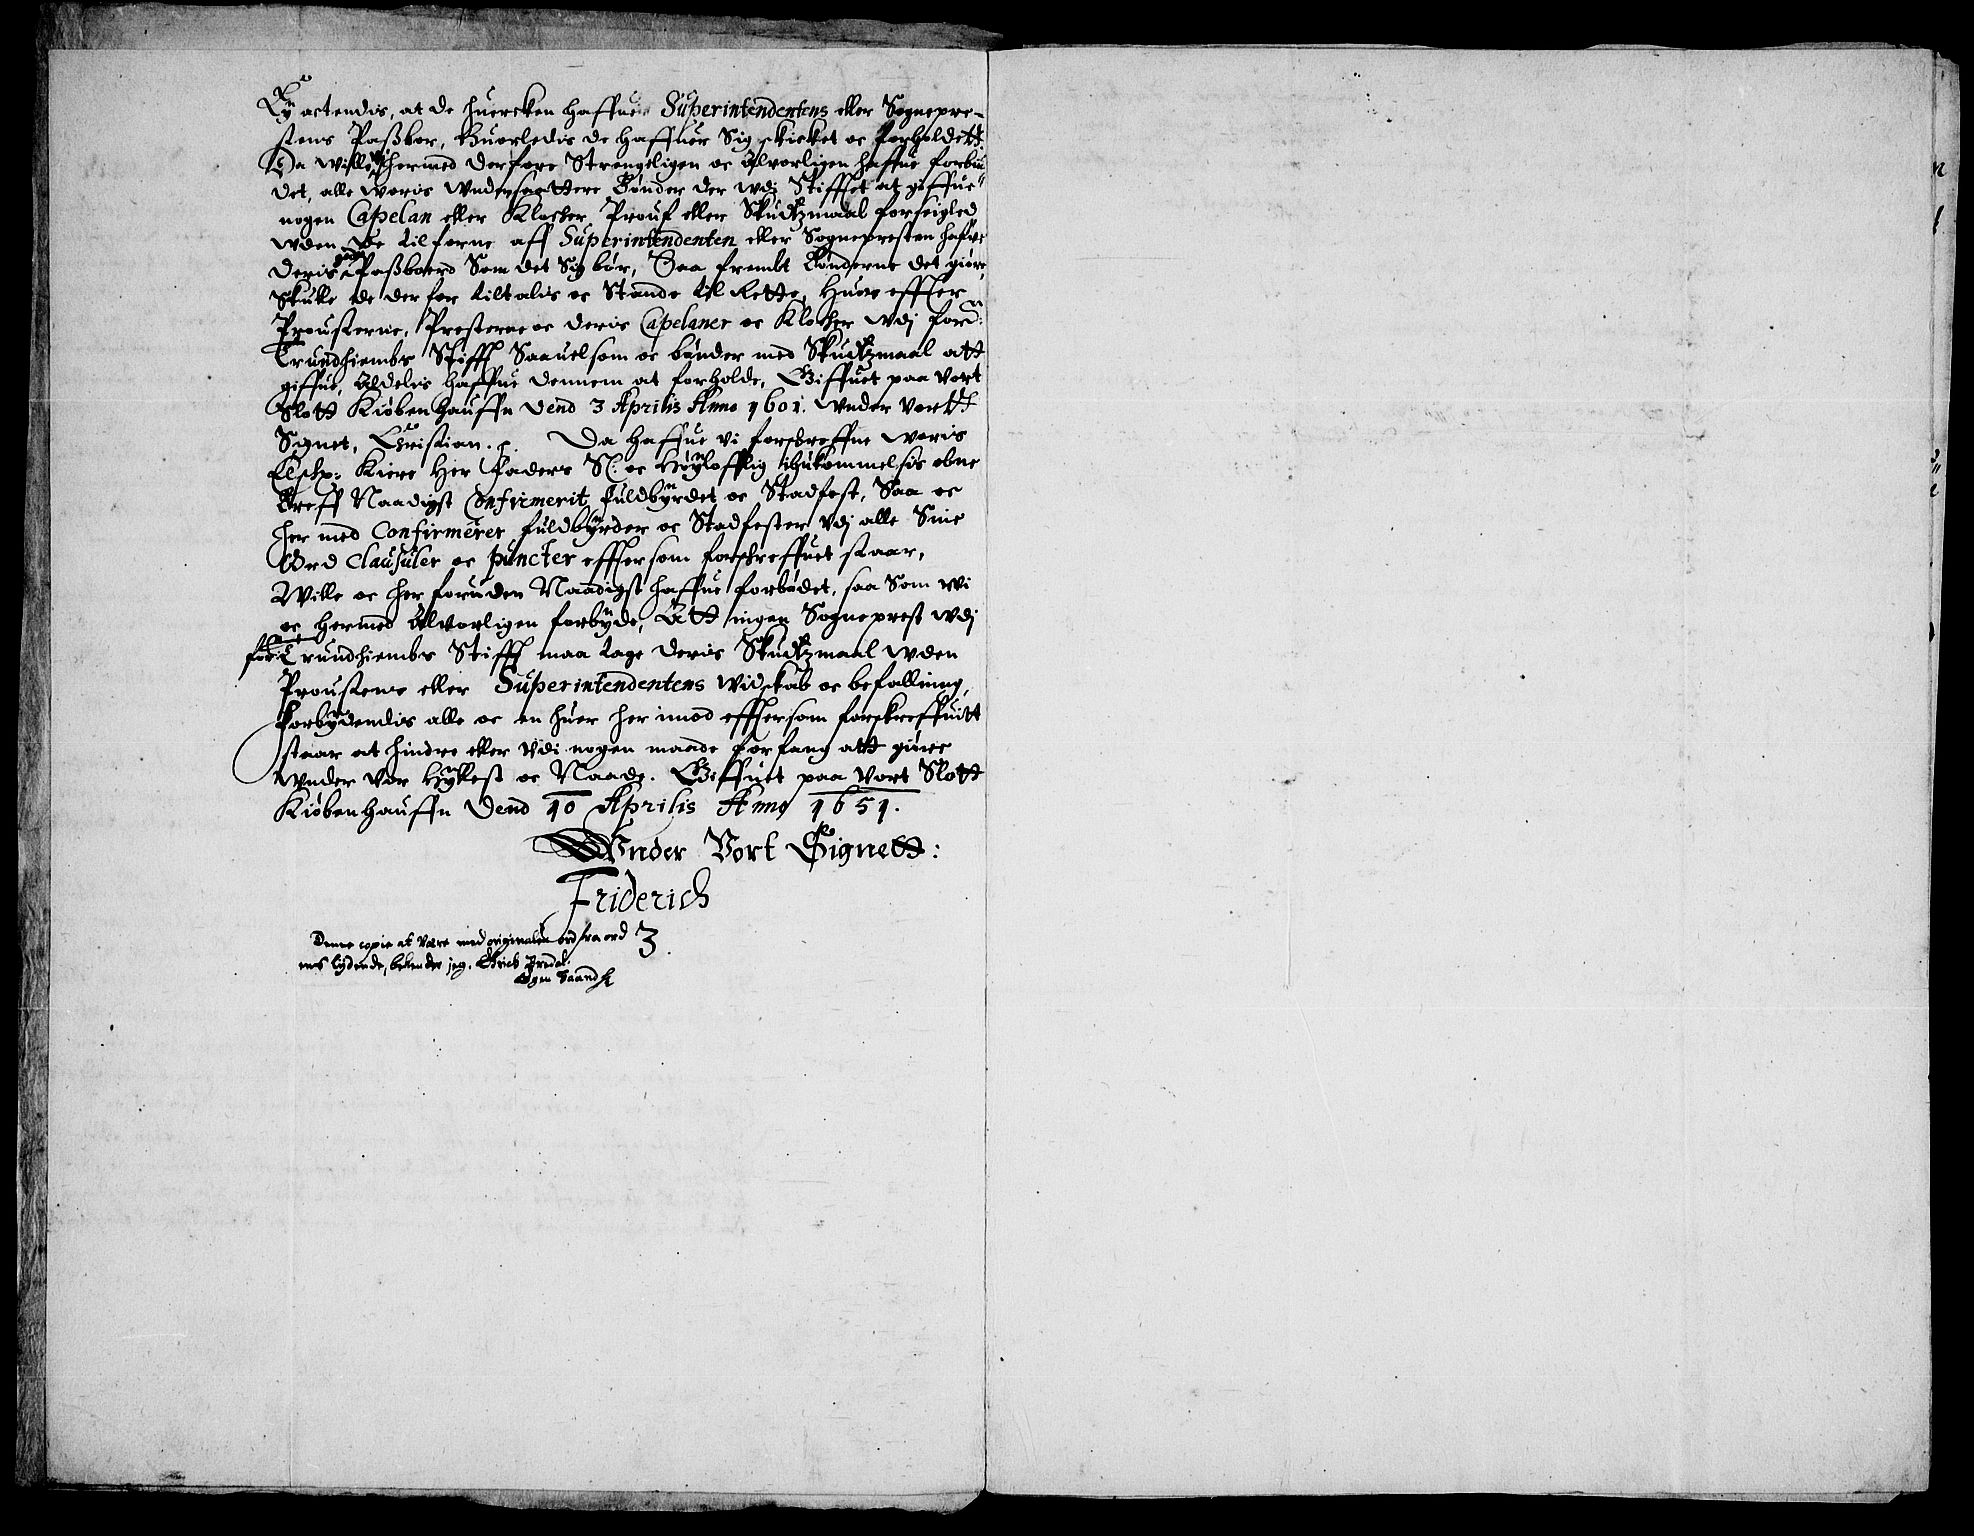 Ey actendis, at de huercken haffue Superintendentens eller Sognepre-
stens Paßbor, Huorledis de haffuer Sig skicket oc forholdett.
Da wille wi hermed derfore Strengeligen oc Alvorligen haffue forbu
det, alle woris Wndersaattere Bønder der wdj Stifftet at giffue
nogen Capelan eller Klocker Prouf eller Skudtzmaal forseigled
wden de tilforne aff Superintendenten eller Sognepresten hafue
deris gode Paßboerd Som det Sig bør, Saa frembt Bønderne det giøre,
Skulle de derfor tiltalis oc Stande til Rette, Huor effter
Prousterne, Presterne oc deris Capelaner oc Klocker wdj ford:
Trundhiembs Stifft Saauelsom oc bønder med Skudtzmaal att
giffue, Aldelis haffue dennem at forholde, Giffuet paa Vort
Slott Kiøbenhauffn Dend 3 Aprilis Anno 1601. Wnder vortt
Signet, Christian. Da haffue vi forskreffne woris
Elskl: Kiere Her Faders S: oc Høylofflig ihukommelsis obne
Breff Naadigst Confirmerit fuldbyrdet oc Stadfest, Saa oc
her med Confirmerer, fuldbyrder oc Stadfester vdj alle Sine
Ord Clausuler oc puncter effthersom forskreffuet staar,
Wille oc her foruden Naadigst haffue forbødet, saa Som wi
oc hermed Alvorligen forbyde, Att ingen Sogneprest wdj
for: Trundhiembs Stifft maa tage deris Skudtzmaal wden
Proustens eller Superintendentens Widskab oc befalling,
Forbydendis alle oc en huer her imod effthersom forskreffuitt
staar at hindre eller vdi nogen maade forfang att giøre
Wnder vor Hyllest oc Naade. Giffuet paa Vort Slott
Kiøbenhauffn Dend 10 Aprilis Anno 1651.
Wnder Vort Signett:
Friderich
3
Denne copie at være med originalen ord fra ord
ens lydende, bekender jeg. Erich Bredal.
Egen haand